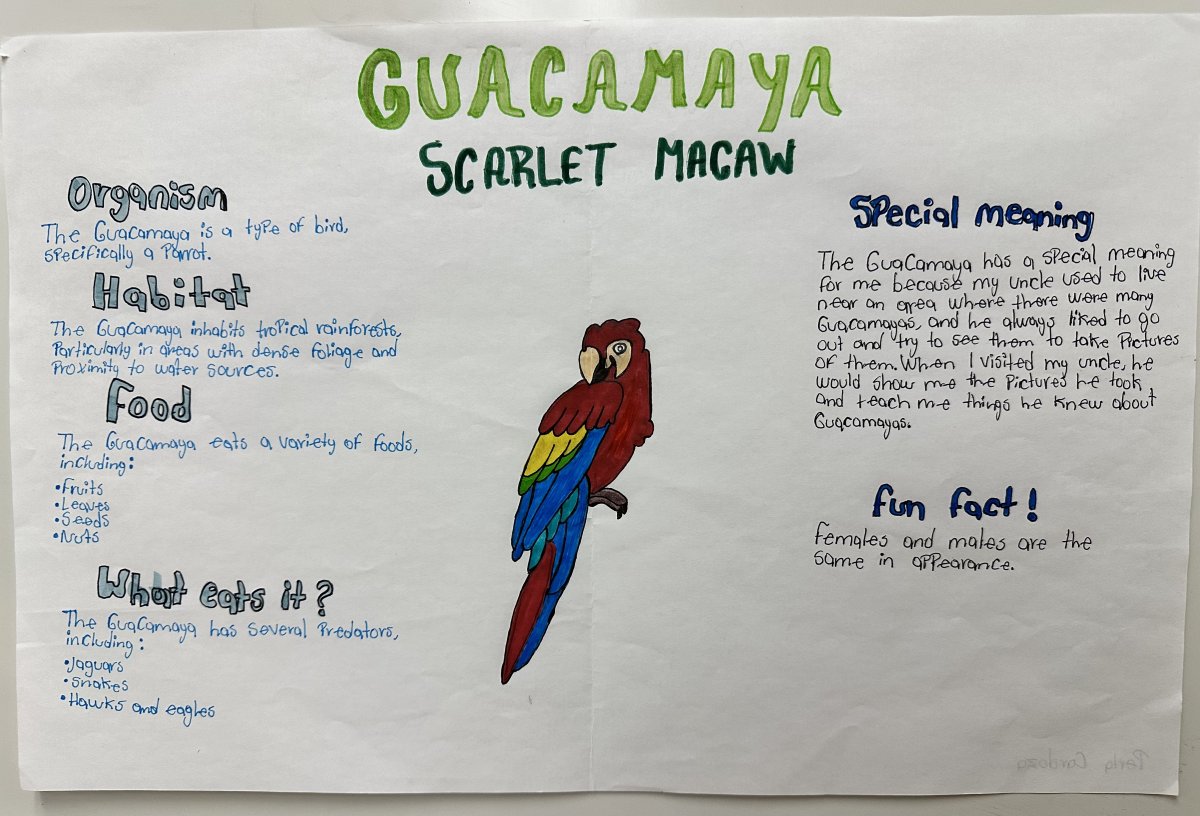 GUACAMAYA
SCARLET MACAW
Organism
The Guacamaya is a type of bird,
specifically a Parrot.
Habitat
The Guacamaya inhabits tropical rainforests,
Particularly in areas with dense foliage and
Proximity to water sources.
Food
The Guacamaya eats a variety of foods,
including:
•Fruits
•Leaves
•Seeds
•Nuts
What eats it?
The Guacamaya has several Predators,
including:
•Jaguars
•Snakes
•Hawks and eagles
Special meaning
The Guacamaya has a special meaning
for me because my uncle used to live
near an area where there were many
Guacamayas, and he always liked to go
out and try to see them to take Pictures
of them. When I visited my uncle, he
would show me the Pictures he took
and teach me things he knew about
Guacamayas.
fun fact!
Females and males are the
same in appearance.
Perla Cardoza